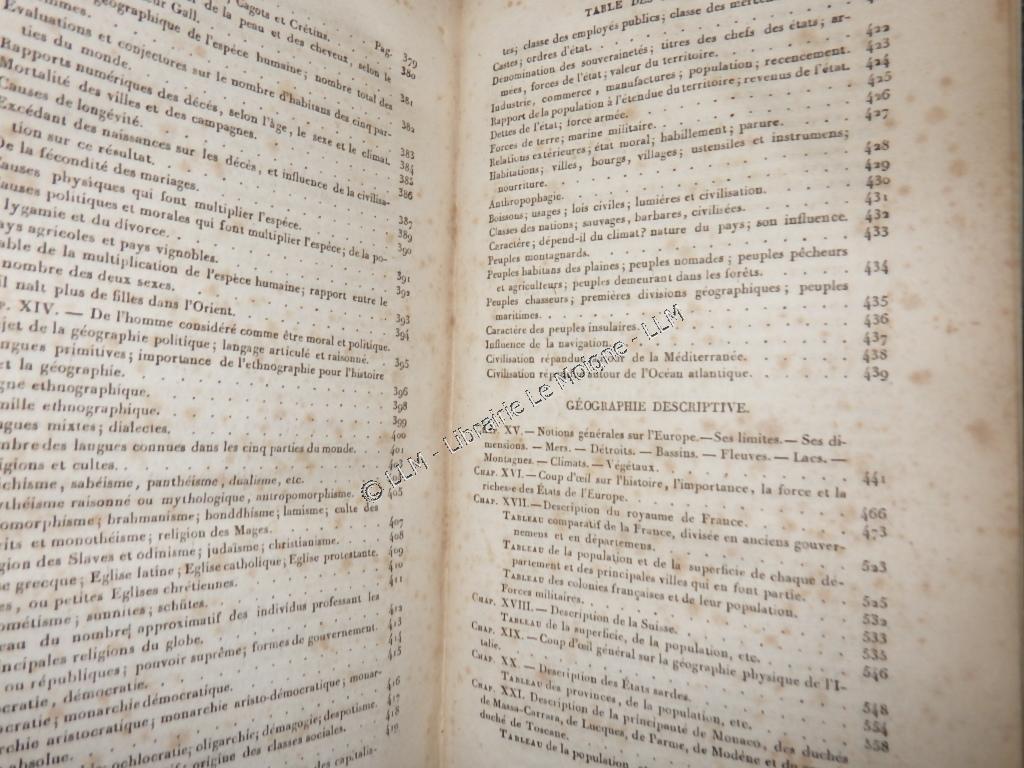 Cagots et Crétins.
Pag. 379
de la peau et des cheveux, selon le
380
géographique de l'espèce humaine; nombre total des
381
Évaluations et conjectures sur le nombre d'habitans des cinq par-
ties du monde.
382
Rapports numériques des décès, selon l'âge, le sexe et le climat.
383
Mortalité des villes et des campagnes.
384
Causes de longévité.
385
Excédant des naissances sur les décès, et influence de la civilisa-
tion sur ce résultat.
386
De la fécondité des mariages.
387
Causes physiques qui font multiplier l'espèce.
389
Causes politiques et morales qui font multiplier l'espèce; de la po-
lygamie et du divorce.
390
Pays agricoles et pays vignobles.
391
de la multiplication de l'espèce humaine; rapport entre le
nombre des deux sexes.
392
il naît plus de filles dans l'Orient.
393
XIV. — De l'homme considéré comme être moral et politique.
394
de la géographie politique; langage articulé et raisonné.
395
primitives; importance de l'ethnographie pour l'histoire
et la géographie.
396
ethnographique.
398
ethnographique.
399
mixtes; dialectes.
400
des langues connues dans les cinq parties du monde.
401
et cultes.
sabéisme, panthéisme, dualisme, etc.
raisonné ou mythologique, antropomorphisme.
405
brahmanisme; bonddhisme; lamisme; culte des
et monothéisme; religion des Mages.
407
des Slaves et odinisme; judaïsme; christianisme.
408
grecque; Eglise latine; Eglise catholique; Eglise protestante.
409
ou petites Eglises chrétiennes.
410
sunnites; schütes.
411
du nombre approximatif des individus professant les
principales religions du globe.
412
ou républiques; pouvoir suprême; formes de gouvernement.
413
démocratie.
414
monarchie démocratique.
415
aristocratique; monarchie aristo-démocratique; monar-
absolue.
416
ochlocratie; oligarchie; démagogie; despotisme.
417
origine des classes sociales.
418
des capitalis-
419
TABLE DES
tes; classe des employés publics; classe des
Castes; ordres d'état.
422
Denomination des souverainetés; titres des chefs des états; ar-
mées, forces de l'état; valeur du territoire.
423
Industrie, commerce, manufactures; population; recencement.
424
Rapport de la population à l'étendue du territoire; revenus de l'état.
425
Dettes de l'état; force armée.
426
Forces de terre; marine militaire.
427
Relations extérieures; état moral; habillement; parure.
Habitations; villes, bourgs, villages; ustensiles et instrumens;
nourriture.
428
Anthropophagie.
429
Boissons; usages; lois civiles; lumières et civilisation.
430
Classes des nations; sauvages, barbares, civilisées.
431
Caractère; dépend-il du climat? nature du pays; son influence.
432
Peuples montagnards.
433
Peuples habitans des plaines; peuples nomades; peuples pêcheurs
et agriculteurs; peuples demeurant dans les forêts.
434
Peuples chasseurs; premières divisions géographiques; peuples
maritimes.
435
Caractère des peuples insulaires.
436
Influence de la navigation.
437
Civilisation répandue autour de la Méditerranée.
438
Civilisation répandue autour de l'Océan atlantique.
439
GÉOGRAPHIE DESCRIPTIVE.
XV. — Notions générales sur l'Europe. — Ses limites. — Ses di-
mensions. — Mers. — Détroits. — Bassins. — Fleuves. — Lacs. —
Montagnes. — Climats. — Végétaux.
441
CHAP. XVI. — Coup d'œil sur l'histoire, l'importance, la force et la
richesse des États de l'Europe.
466
CHAP. XVII. — Description du royaume de France.
473
TABLEAU comparatif de la France, divisée en anciens gouver-
nemens et en départemens.
523
TABLEAU de la population et de la superficie de chaque dé-
partement et des principales villes qui en font partie.
525
TABLEAU des colonies françaises et de leur population.
532
Forces militaires.
533
CHAP. XVIII. — Description de la Suisse.
535
TABLEAU de la superficie, de la population, etc.
546
CHAP. XIX. — Coup d'œil général sur la géographie physique de l'I-
talie.
548
CHAP. XX. — Description des États sardes.
554
TABLEAU des provinces, de la population, etc.
558
CHAP. XXI. Description de la principauté de Monaco, des duchés
de Massa-Carrara, de Lucques, de Parme, de Modène et du
duché de Toscane.
TABLEAU de la population,
© LLM - Librairie Le Moigne - LLM